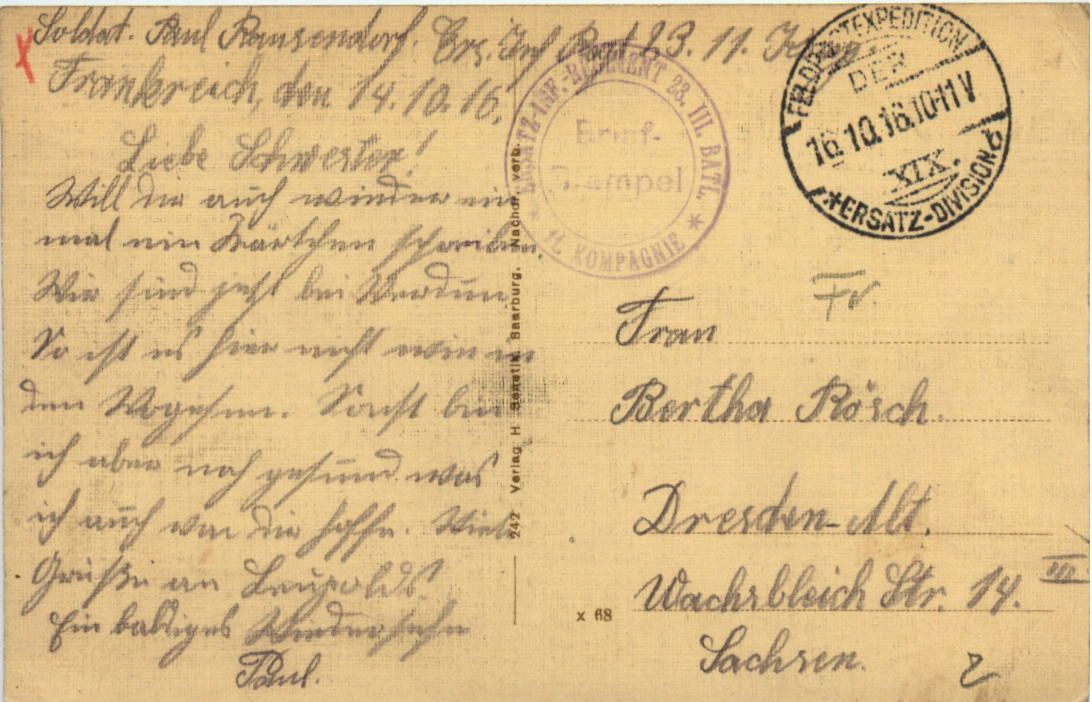 Soldat. Paul Ransendorf. Ers. Inf. Reg. 23. 11. Komp.
Frankreich, den 14.10.16.
Liebe Schwester!
Will dir auch wieder ein
mal ein Kärtchen schreiben.
Wir sind jetzt bei Verdun.
So ist es hier nicht wie in
den Vogesen. Sonst bin
ich aber noch gesund was
ich auch von dir hoffe. Viele
Grüße an Leupolds.
Ein baldiges Wiedersehn
Paul.
ERSATZ-INF.-REGIMENT 23. III. BATL.
Brief-
Stempel
* 11. KOMPAGNIE *
FELDPOSTEXPEDITION
DER
16.10.16.10-11V
XIX.
*ERSATZ-DIVISION
242 Verlag H. Saarburg. Nachdr. verb.
Fr.
Frau
Bertha Rösch.
Dresden-Alt.
Wachsbleich Str. 14. III
Sachsen.
x 68